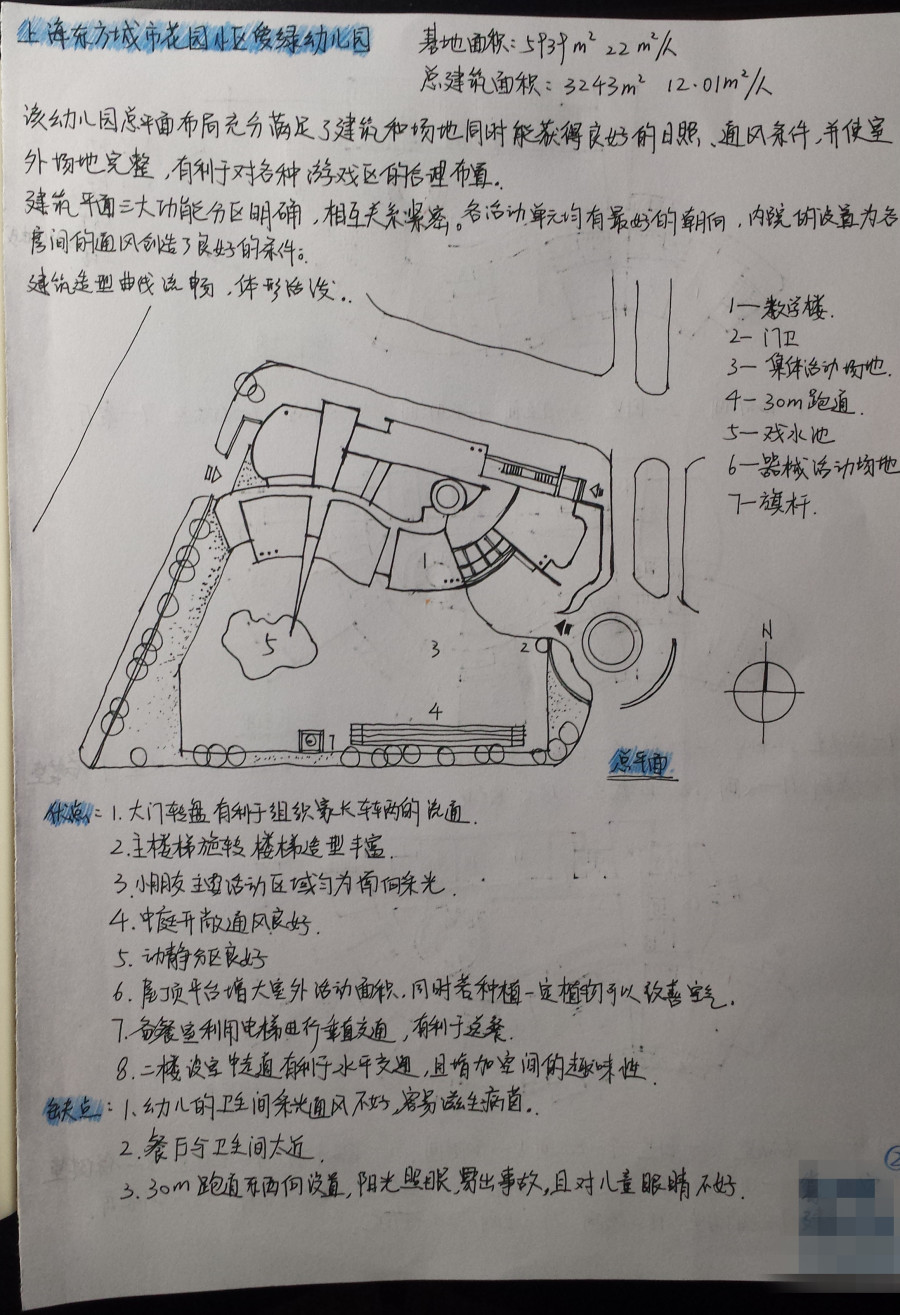 上海东方城市花园小区爱绿幼儿园
基地面积：5939m² 22m²/人
总建筑面积：3243m² 12.01m²/人
该幼儿园总平面布局充分满足了建筑和场地同时能获得良好的日照、通风条件，并使室
外场地完整，有利于对各种游戏区的合理布置。
建筑平面三大功能分区明确，相互关系紧密。各活动单元均有最好的朝向，内院的设置为各
房间的通风创造了良好的条件。
建筑造型曲线流畅，体形活泼。
1—教学楼.
2—门卫
3—集体活动场地.
4—30m跑道.
5—戏水池
6—器械活动场地
7—旗杆.
1
5
3
2
4
7
N
总平面
优点：1.大门转盘有利于组织家长车辆的流通.
2.主楼梯旋转楼梯造型丰富.
3.小朋友主要活动区域均为南向采光.
4.中庭开敞通风良好.
5.动静分区良好
6.屋顶平台增大室外活动面积.同时若种植一定植物可以改善空气.
7.备餐室利用电梯进行垂直交通，有利于送餐.
8.二楼设空中走道有利于水平交通，且增加空间的趣味性.
缺点：1.幼儿的卫生间采光通风不好，容易滋生病菌。
2.餐厅与卫生间太近.
3.30m跑道东西向设置，阳光照眼，易出事故，且对儿童眼睛不好.